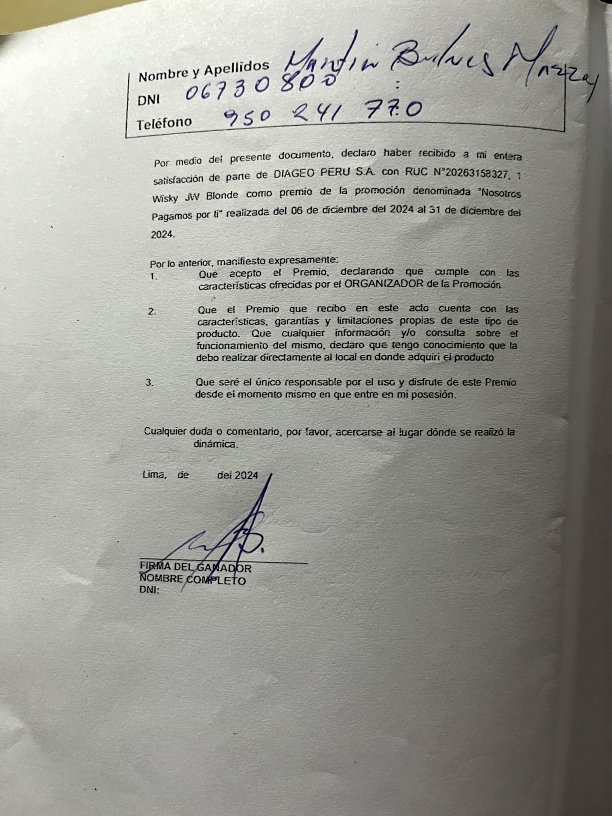 Nombre y Apellidos Martin Bulnes
DNI 06730800
Teléfono 950 241 770
Por medio del presente documento, declaro haber recibido a mi entera
satisfacción de parte de DIAGEO PERU S.A. con RUC N°20263158327, 1
Wisky JW Blonde como premio de la promoción denominada "Nosotros
Pagamos por ti" realizada del 06 de diciembre del 2024 al 31 de diciembre del
2024.
Por lo anterior, manifiesto expresamente:
1. Que acepto el Premio, declarando que cumple con las
características ofrecidas por el ORGANIZADOR de la Promoción
2. Que el Premio que recibo en este acto cuenta con las
características, garantías y limitaciones propias de este tipo de
producto. Que cualquier información y/o consulta sobre el
funcionamiento del mismo, declaro que tengo conocimiento que la
debo realizar directamente al local en donde adquirí el producto
3. Que seré el único responsable por el uso y disfrute de este Premio
desde el momento mismo en que entre en mi posesión.
Cualquier duda o comentario, por favor, acercarse al lugar dónde se realizó la
dinámica.
Lima, de del 2024
FIRMA DEL GANADOR
NOMBRE COMPLETO
DNI: